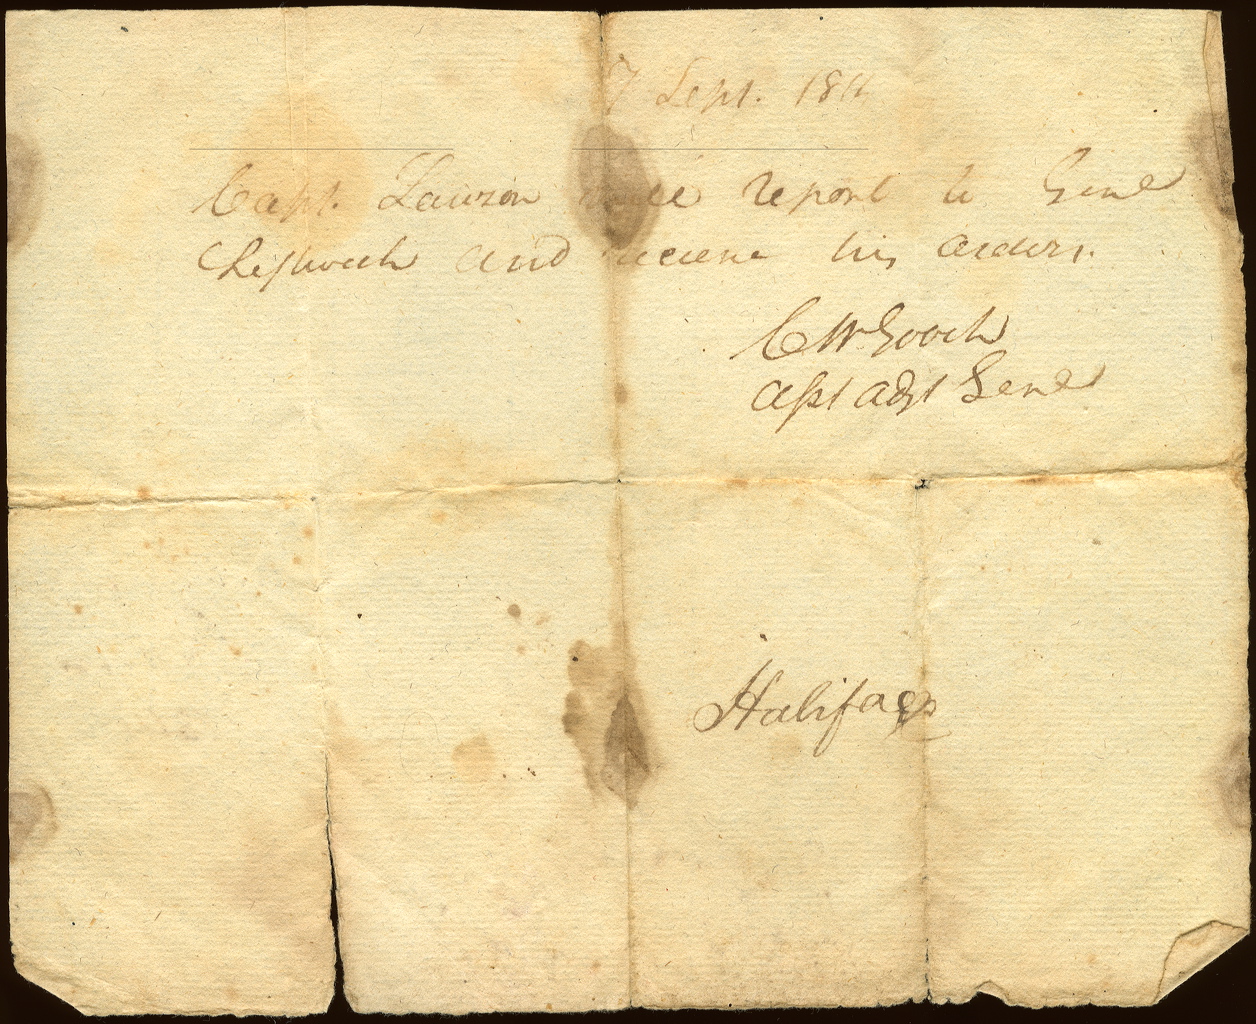 7 Sept. 181
Capt. Lawson will report to Genl
and receive his orders.
C W. Gooch
Asst Adjt Genl
Halifax